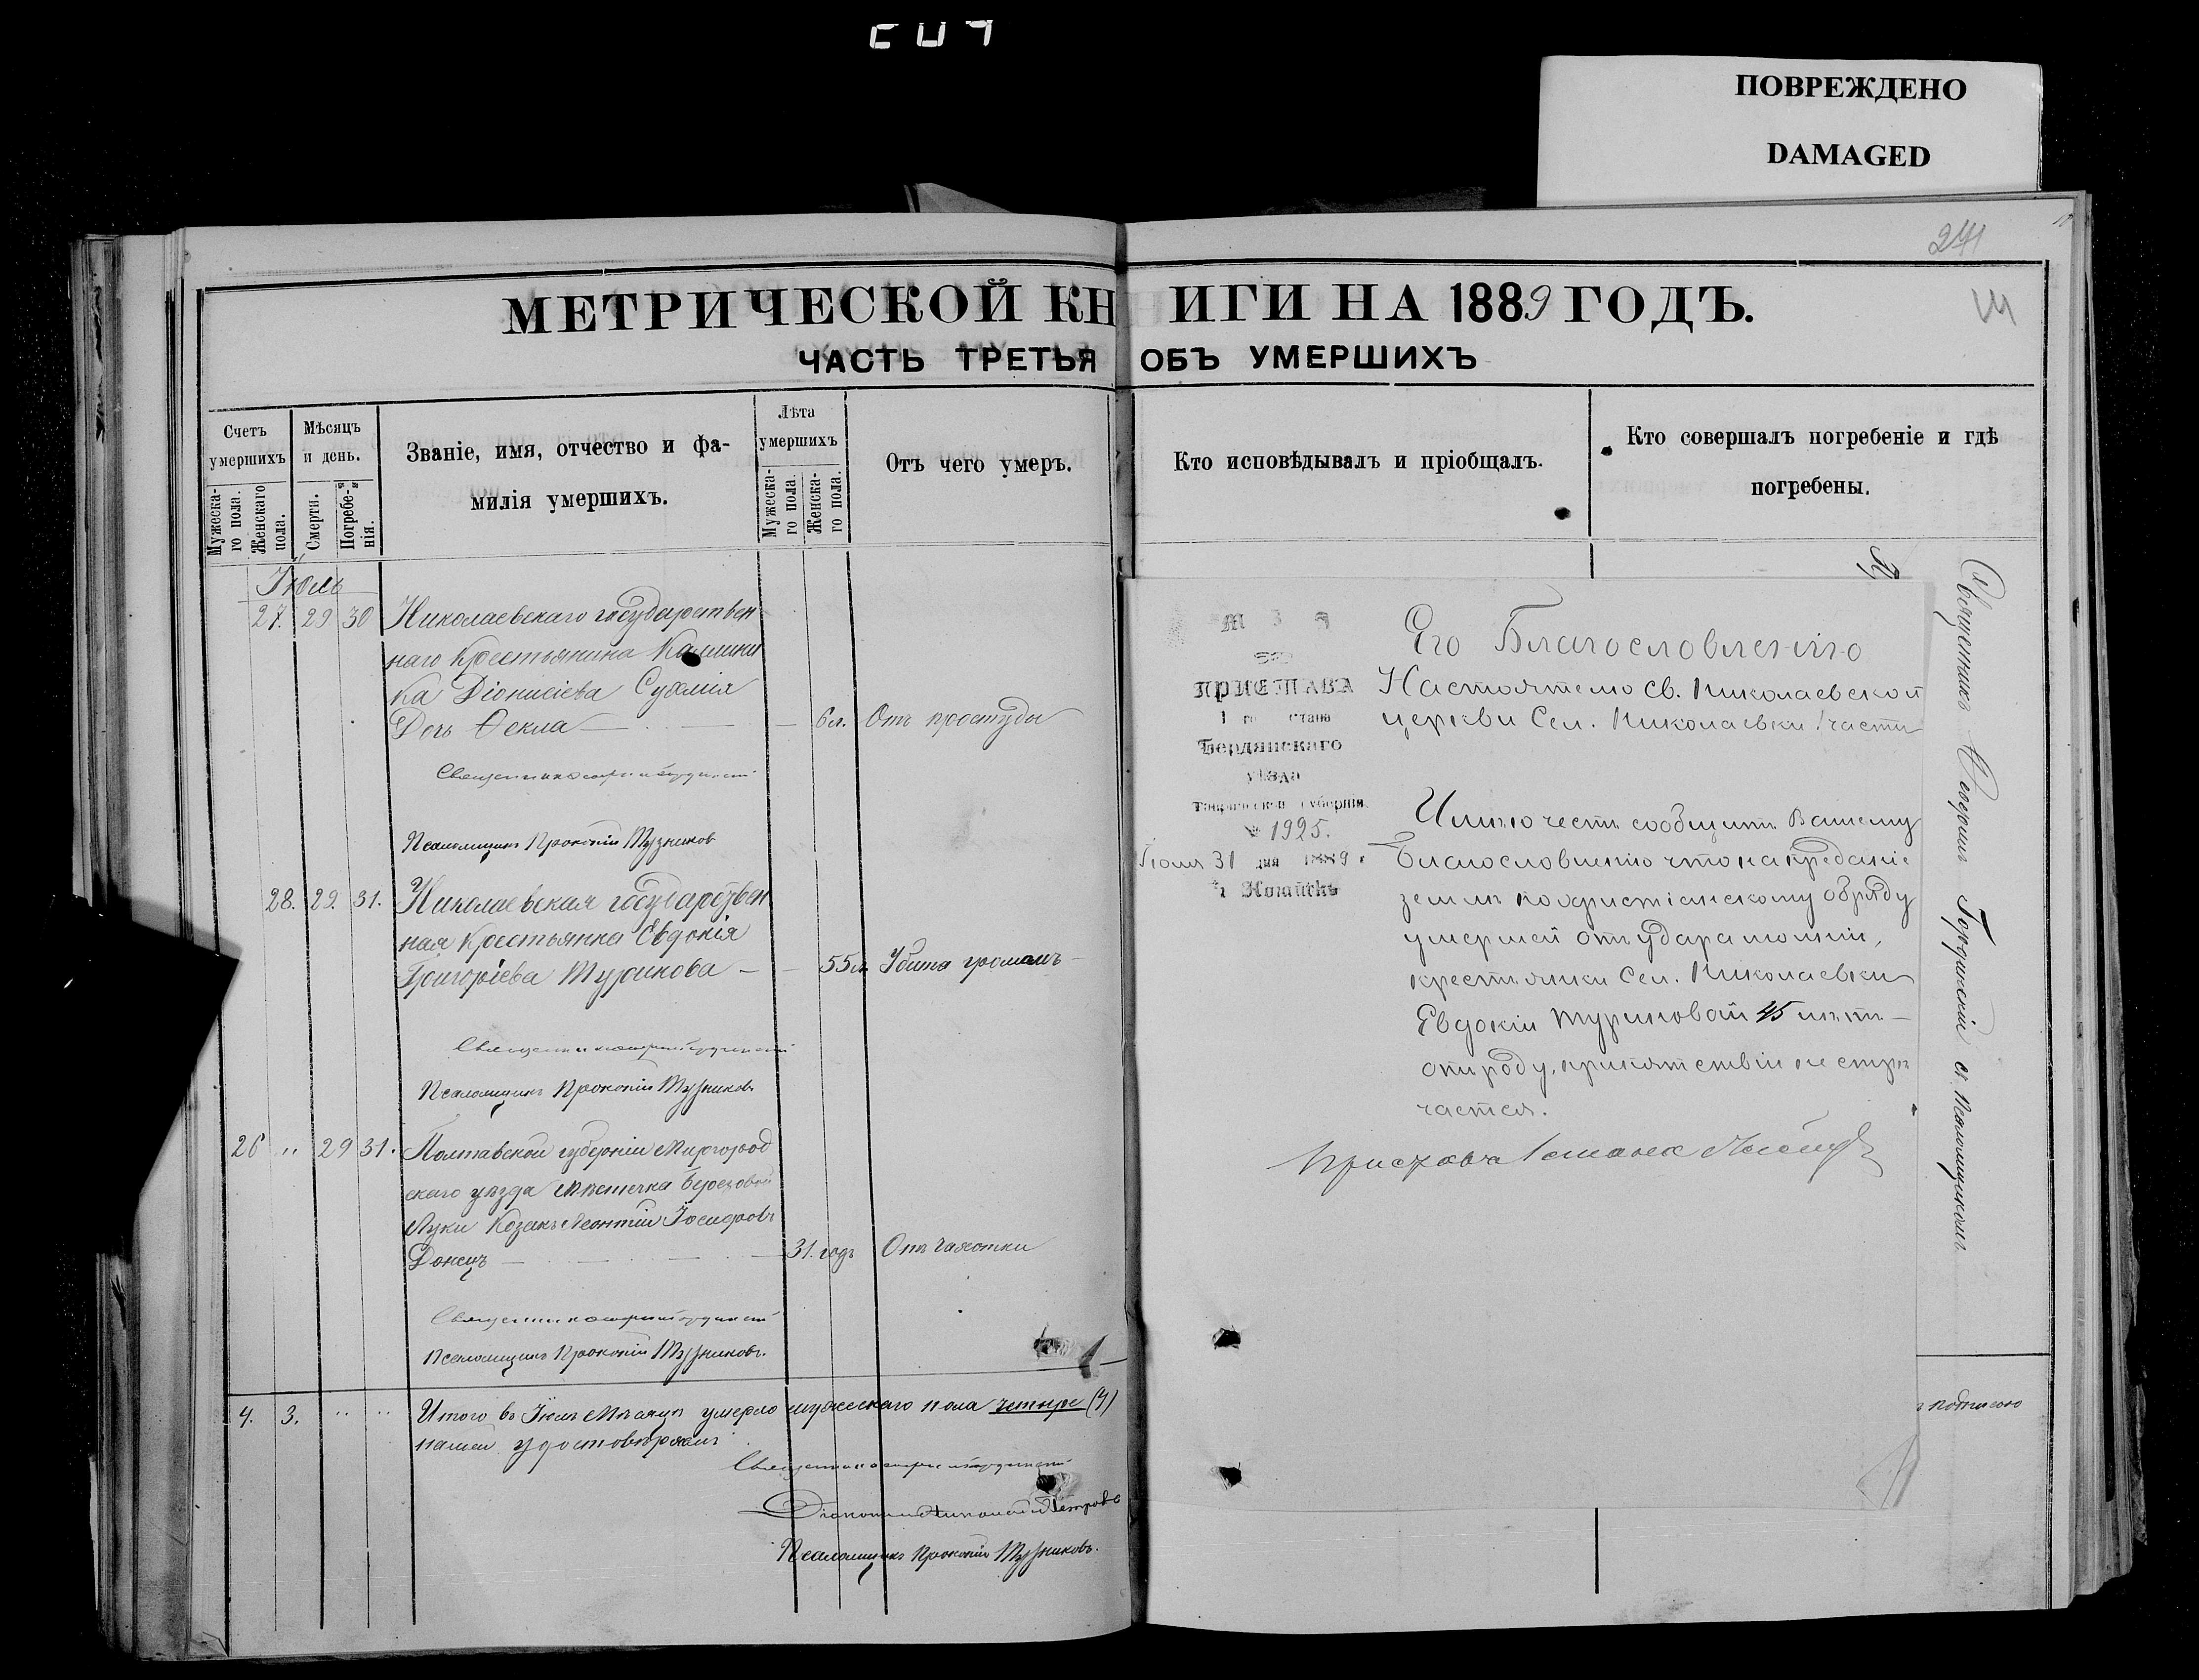 ПОВРЕЖДЕНО
DAMAGED
241
МЕТРИЧЕСКОЙ КНИГИ НА 1889 ГОДЪ.
ЧАСТЬ ТРЕТЬЯ ОБЪ УМЕРШИХЪ
Счетъ умершихъ
Мужеска-
го пола.
Женскаго
пола.
Мѣсяцъ
и день.
Смерти.
Погребе-
нія.
Званіе, имя, отчество и фа-
милія умершихъ.
Лѣта
умершихъ
Мужеска-
го пола.
Женска-
го пола.
Отъ чего умеръ.
Кто исповѣдывалъ и пріобщалъ.
Кто совершалъ погребеніе и гдѣ
погребены.
Іюль
27. 29 30 Николаевскаго государствен
наго крестьянина Калини
ка Діонисіева
Дочь Ѳекла — 6 л. Отъ простуды
Псаломщикъ Прокопій
28. 29. 31. Николаевская государствен
ная крестьянка Евдокія
Григорьева Туринова — 55 л. Убита громомъ
Псаломщикъ Прокопій
26 " 29 31. Полтавской губерніи Миргород
скаго уѣзда Мѣстечка Березовой
Луки Козакъ Леонтій Іосифовъ
Донецъ — 31. годъ Отъ чахотки
Псаломщикъ Прокопій
4. 3. " " Итого въ Іюлѣ Мѣсяцѣ умерло мужескаго пола четыре (4)
нашей удостовѣряемъ
Николай Петровъ
Псаломщикъ Прокопій
М В Д
ПРИСТАВА
1 го стана
Бердянскаго
уѣзда
Таврической губерніи.
№ 1925.
Іюля 31 дня 1889 г
г Ногайскъ
Его Благословленію
Настоятелю св. Николаевской
церкви Сел. Николаевки 1 части
Имѣю честь сообщить Вашему
Благословленію что на преданіе
землѣ по христіанскому обряду
умершей отъ удара молніи,
крестьянки Сел. Николаевки
Евдокіи Туриновой 45 лѣтъ —
отъ роду, препятствій не встрѣ
чается.
Пристава 1 стана
Священникъ Георгій Гординскій съ Псаломщикомъ
подписью